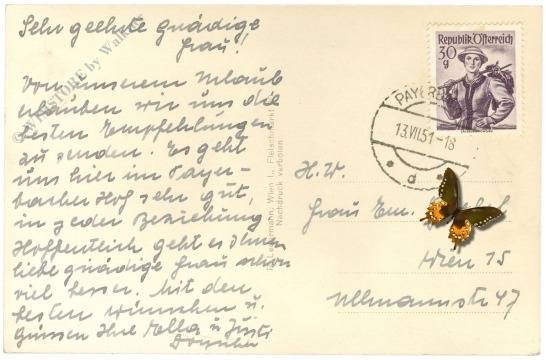 Sehr geehrte gnädige
Frau!
Von unserem Urlaub
erlauben wir uns die
besten Empfehlungen
zu senden. Es geht
uns hier im Payer-
bacher Hof sehr gut,
in jeder Beziehung.
Hoffentlich geht es Ihnen
liebe gnädige Frau schon
viel besser. Mit den
besten Wünschen u.
Grüssen Ihre Ella u. Justi
© WEBSTORE by Walter
Wien I., Fleischmarkt
Nachdruck verboten
Republik Österreich
30
g
PAYER
13.VII.51-18
* d *
H.W.
Frau Em.
Wien 15
Ullmannstr 47